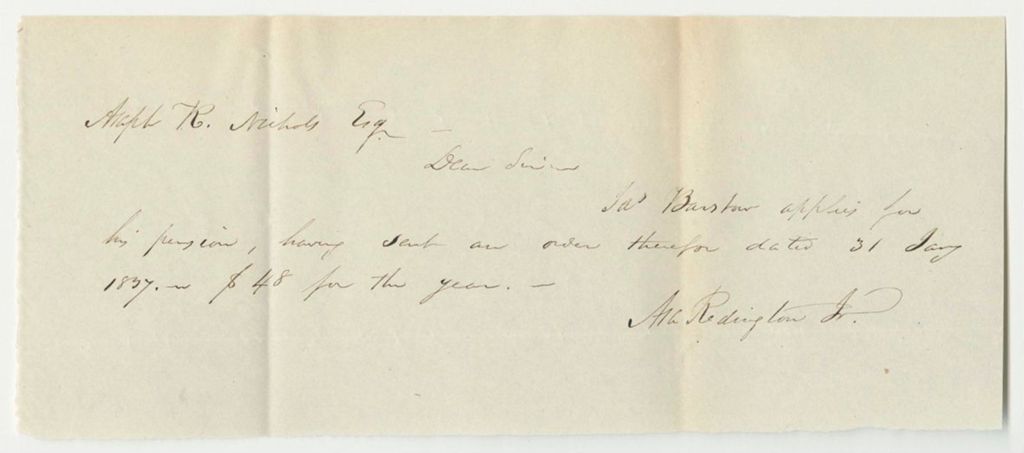 Asaph R. Nichols Esq —
Dear Sir
Jas Barstow applies for
his pension, having sent an order therefor dated 31 Jany
1837. — $48 for the year. —
Asa Redington Jr.